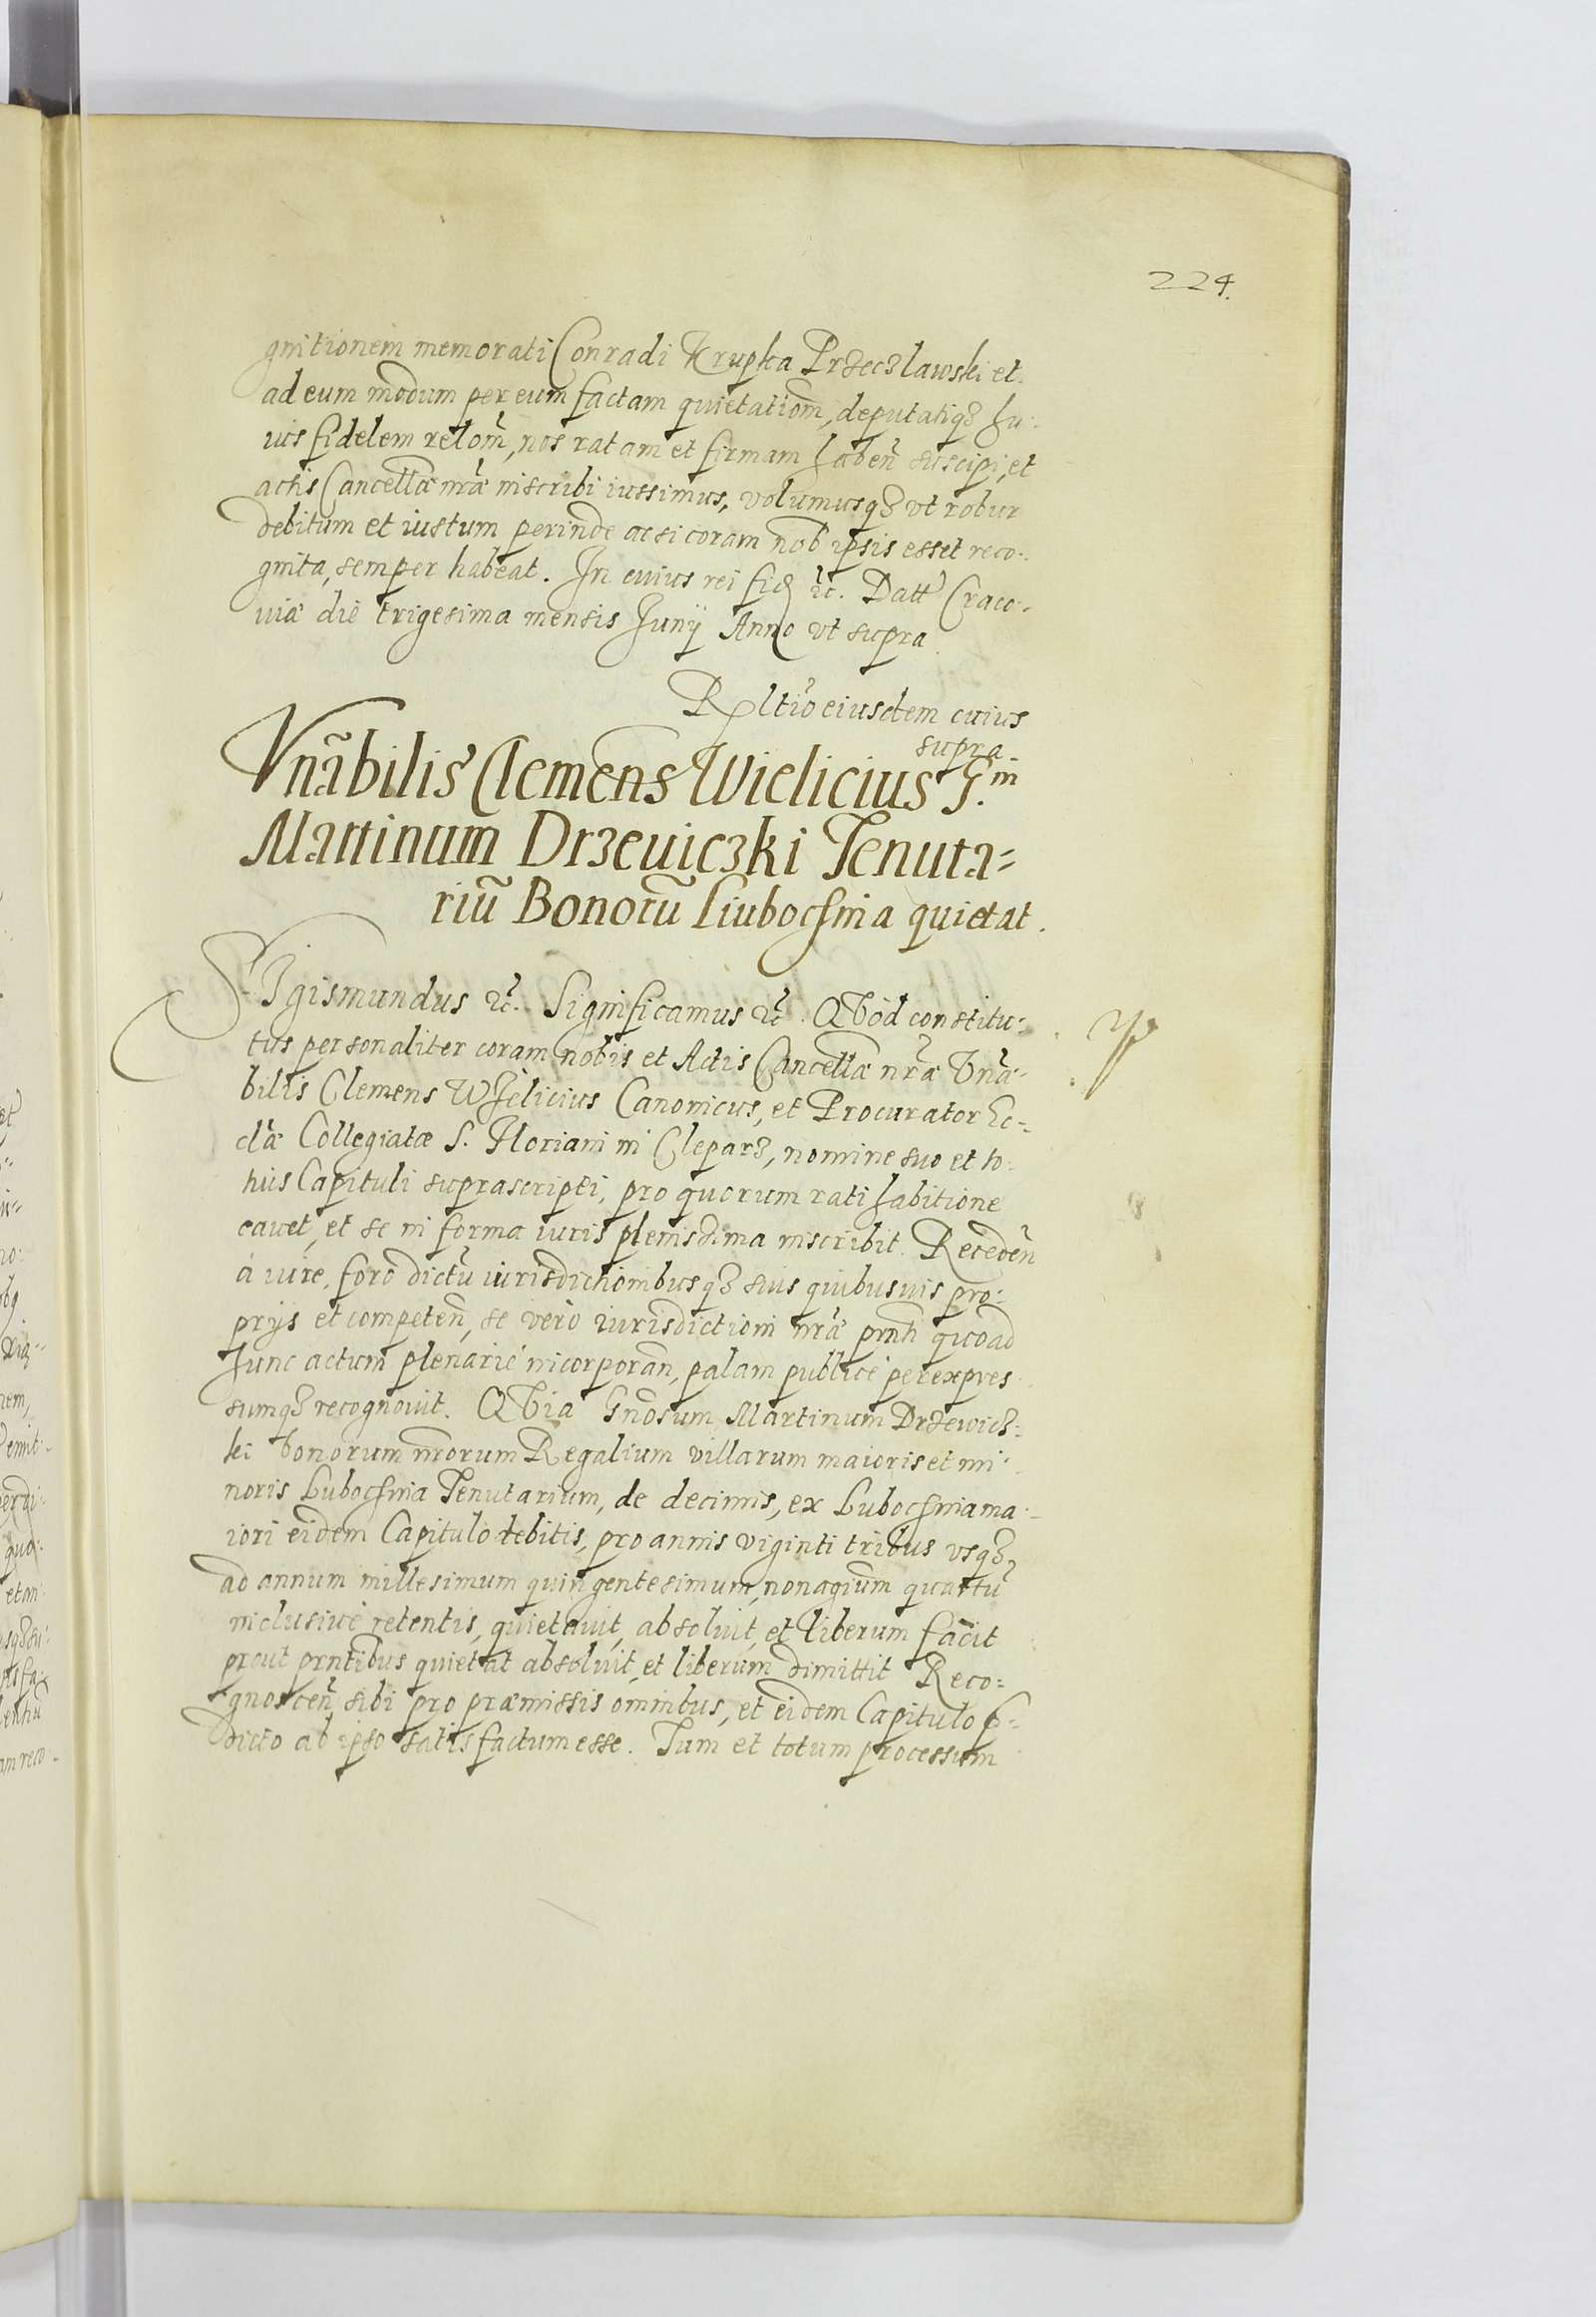 224.
gnitionem memorati Conradi Krupka Przeczlawski et
ad eum modum per eum factam quietationē, deputatiqȝ hu:
uis fidelem relōm, nos ratam et firmam haben̄ suscipi, et
actis Cancellæ nr̄æ inscribi iussimus, volumusqȝ vt robur
debitum et iustum perinde ac si coram nob ipsis esset reco:
gnita, semper habeat. In cuius rei fidȝ ꝛc. Datt Craco:
uiæ die trigesima mensis Junÿ Anno vt supra
Rltio eiusdem cuius
supra
Vnãbilis Clemens Wielicius G.m
Martinum Drzeuiczki Tenuta=
riũ Bonorũ Liubochnia quietat.
SJgismundus ꝛc. Significamus ꝛc. QVod constitu:
tus personaliter coram nobis et Actis Cancellæ nr̄æ Vnã:
bilis Clemens WJelicius Canonicus, et Procurator Ec:
clæ Collegiatæ S. Floriani in Cleparȝ, nomine suo et to:
tius Capituli suprascripti, pro quorum ratihabitione
cauet, et se in forma iuris plenissima inscribit. Receden̄
à iure, foro dictū iurisdictionibusqȝ suis quibusuis pro:
prÿs et competen̄, se verò iurisdictioni nr̄æ prnti quoad
hunc actum plenariè incorporan̄, palam publicè per expres
sumqȝ recognouit. QVia Gnosum Martinum Drzewicȝ:
ki bonorum nrorum Regalium villarum maioris et mi:
noris Lubochnia Tenutarium, de decimis, ex Lubochnia ma:
iori eidem Capitulo debitis, pro annis viginti tribus vsqȝ
ad annum millesimum quingentesimum, nonagium quartū
inclusiuè retentis, quietauit, absoluit, et liberum facit
prout prntibus quietat absoluit, et liberum dimittit Reco:
gnoscen̄ sibi pro præmissis omnibus, et eidem Capitulo p:
dicto ab ipso satisfactum esse. Tum et totum processum